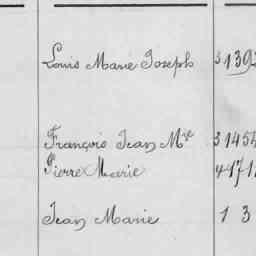 Louis Marie Joseph 3 1392
François Jean Mie 3 1454
Pierre Marie 4 171
Jean Marie 1 3